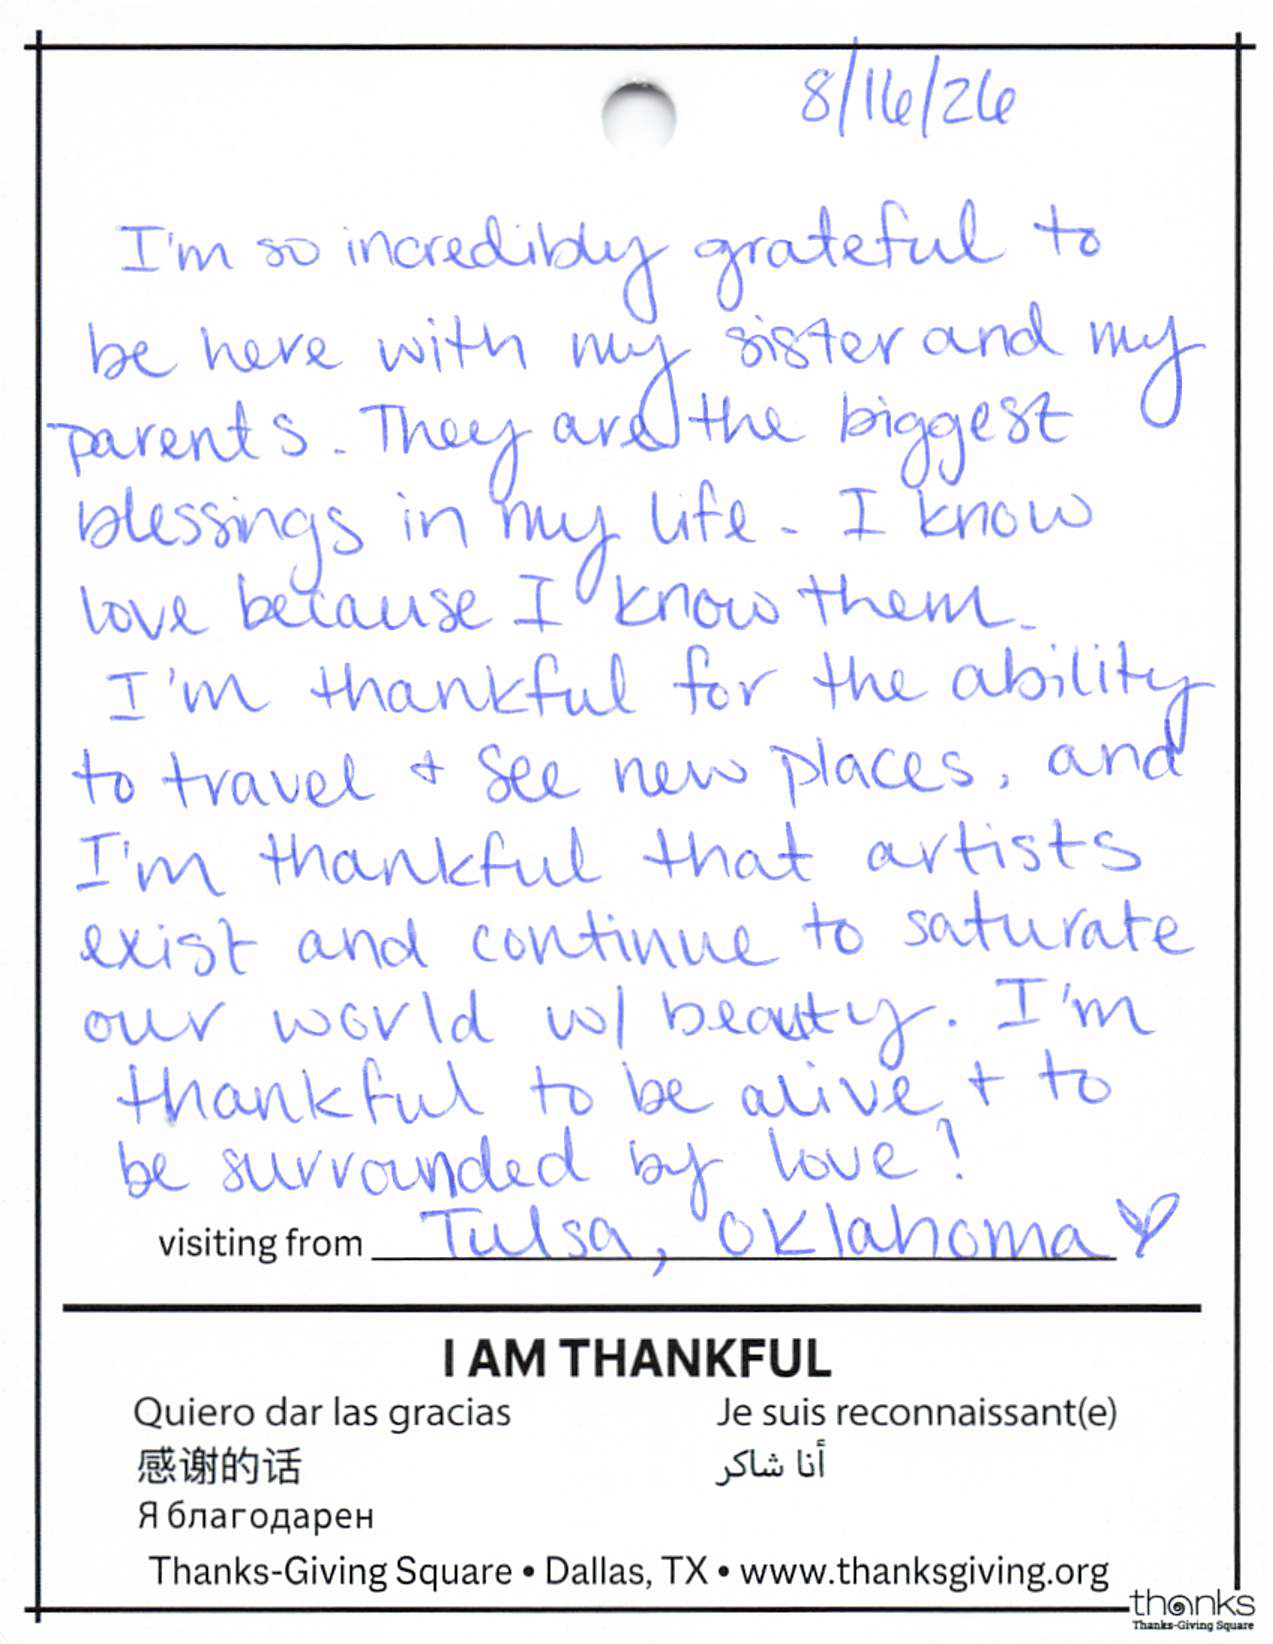 8/16/26
I'm so incredibly grateful to
be here with my sister and my
parents. They are the biggest
blessings in my life. I know
love because I know them.
I'm thankful for the ability
to travel + see new places, and
I'm thankful that artists
exist and continue to saturate
our world w/ beauty. I'm
thankful to be alive + to
be surrounded by love!
visiting from Tulsa, Oklahoma
I AM THANKFUL
Quiero dar las gracias
Je suis reconnaissant(e)
感谢的话
أنا شاكر
Я благодарен
Thanks-Giving Square • Dallas, TX • www.thanksgiving.org
thanks
Thanks-Giving Square